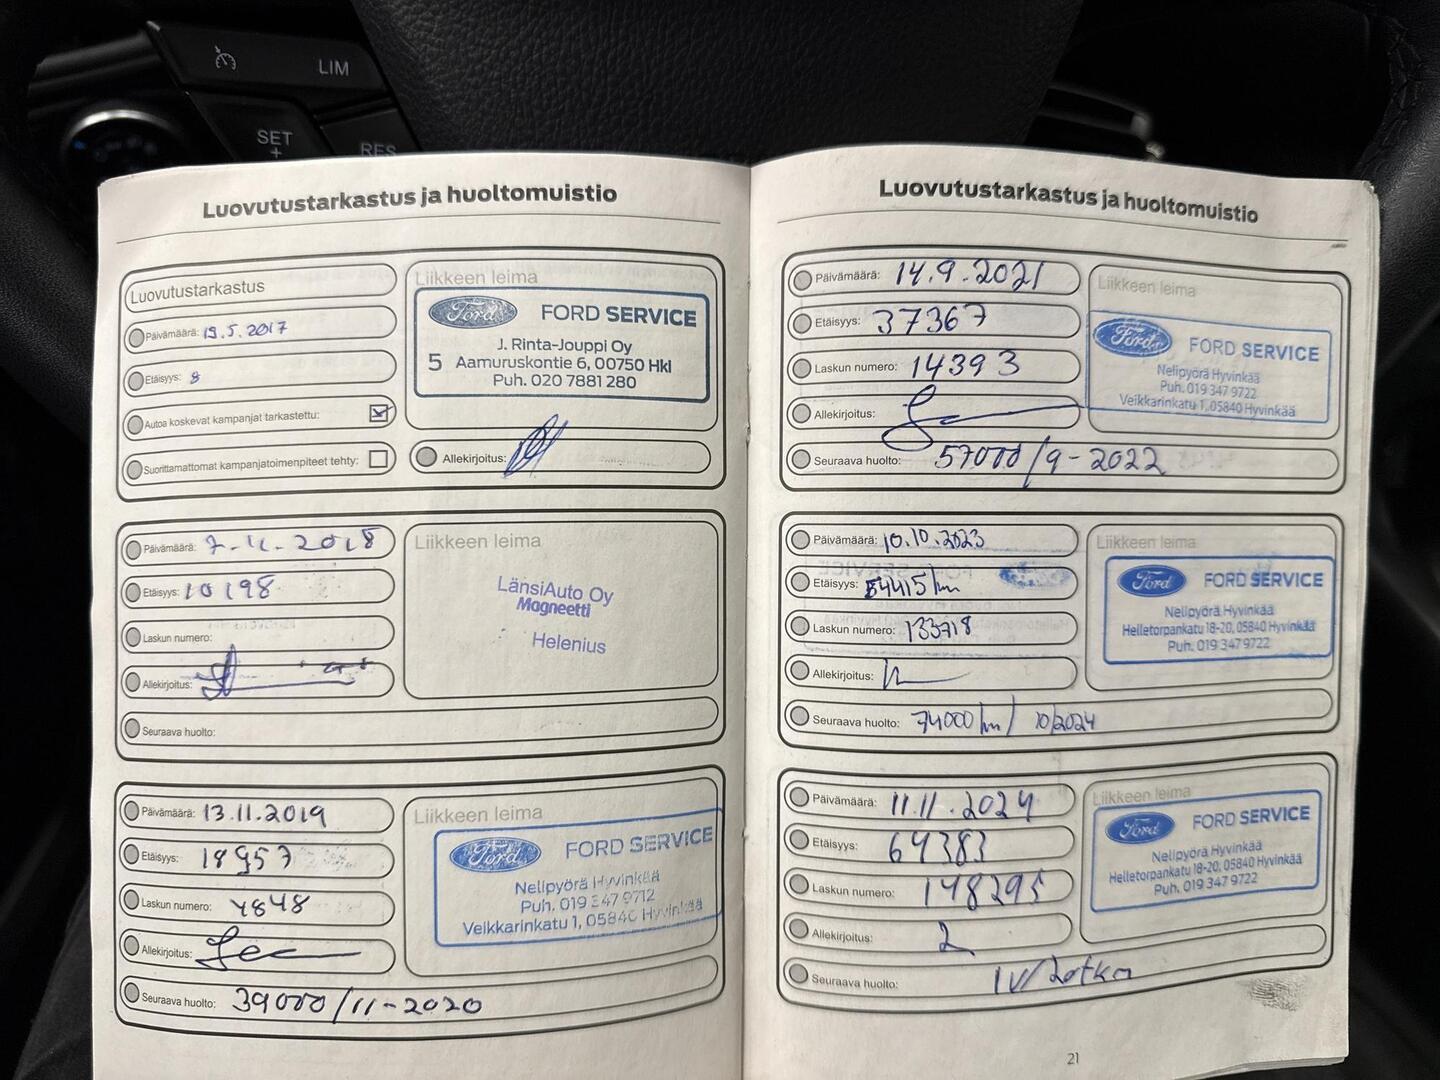 LIM
SET
+
RES
Luovutustarkastus ja huoltomuistio
Luovutustarkastus
Päivämäärä: 19.5.2017
Etäisyys: 8
Autoa koskevat kampanjat tarkastettu:
Suorittamattomat kampanjatoimenpiteet tehty:
Liikkeen leima
Ford FORD SERVICE
J. Rinta-Jouppi Oy
5 Aamuruskontie 6, 00750 Hki
Puh. 020 7881 280
Allekirjoitus:
Päivämäärä: 7-11-2018
Etäisyys: 10198
Laskun numero:
Allekirjoitus:
Seuraava huolto:
Liikkeen leima
LänsiAuto Oy
Magneetti
Helenius
Päivämäärä: 13.11.2019
Etäisyys: 18957
Laskun numero: 4848
Allekirjoitus:
Seuraava huolto: 39000/11-2020
Liikkeen leima
Ford FORD SERVICE
Nelipyörä Hyvinkää
Puh. 019 347 9712
Veikkarinkatu 1, 05840 Hyvinkää
Luovutustarkastus ja huoltomuistio
Päivämäärä: 14.9.2021
Etäisyys: 37367
Laskun numero: 14393
Allekirjoitus:
Seuraava huolto: 57000/9-2022
Liikkeen leima
Ford FORD SERVICE
Nelipyörä Hyvinkää
Puh. 019 347 9722
Veikkarinkatu 1, 05840 Hyvinkää
Päivämäärä: 10.10.2023
Etäisyys: 54415 km
Laskun numero: 133718
Allekirjoitus:
Seuraava huolto: 74000 km/ 10/2024
Liikkeen leima
Ford FORD SERVICE
Nelipyörä Hyvinkää
Helletorpankatu 18-20, 05840 Hyvinkää
Puh. 019 347 9722
Päivämäärä: 11.11.2024
Etäisyys: 64383
Laskun numero: 148295
Allekirjoitus:
Seuraava huolto: 1V/20tkm
Liikkeen leima
Ford FORD SERVICE
Nelipyörä Hyvinkää
Helletorpankatu 18-20, 05840 Hyvinkää
Puh. 019 347 9722
21